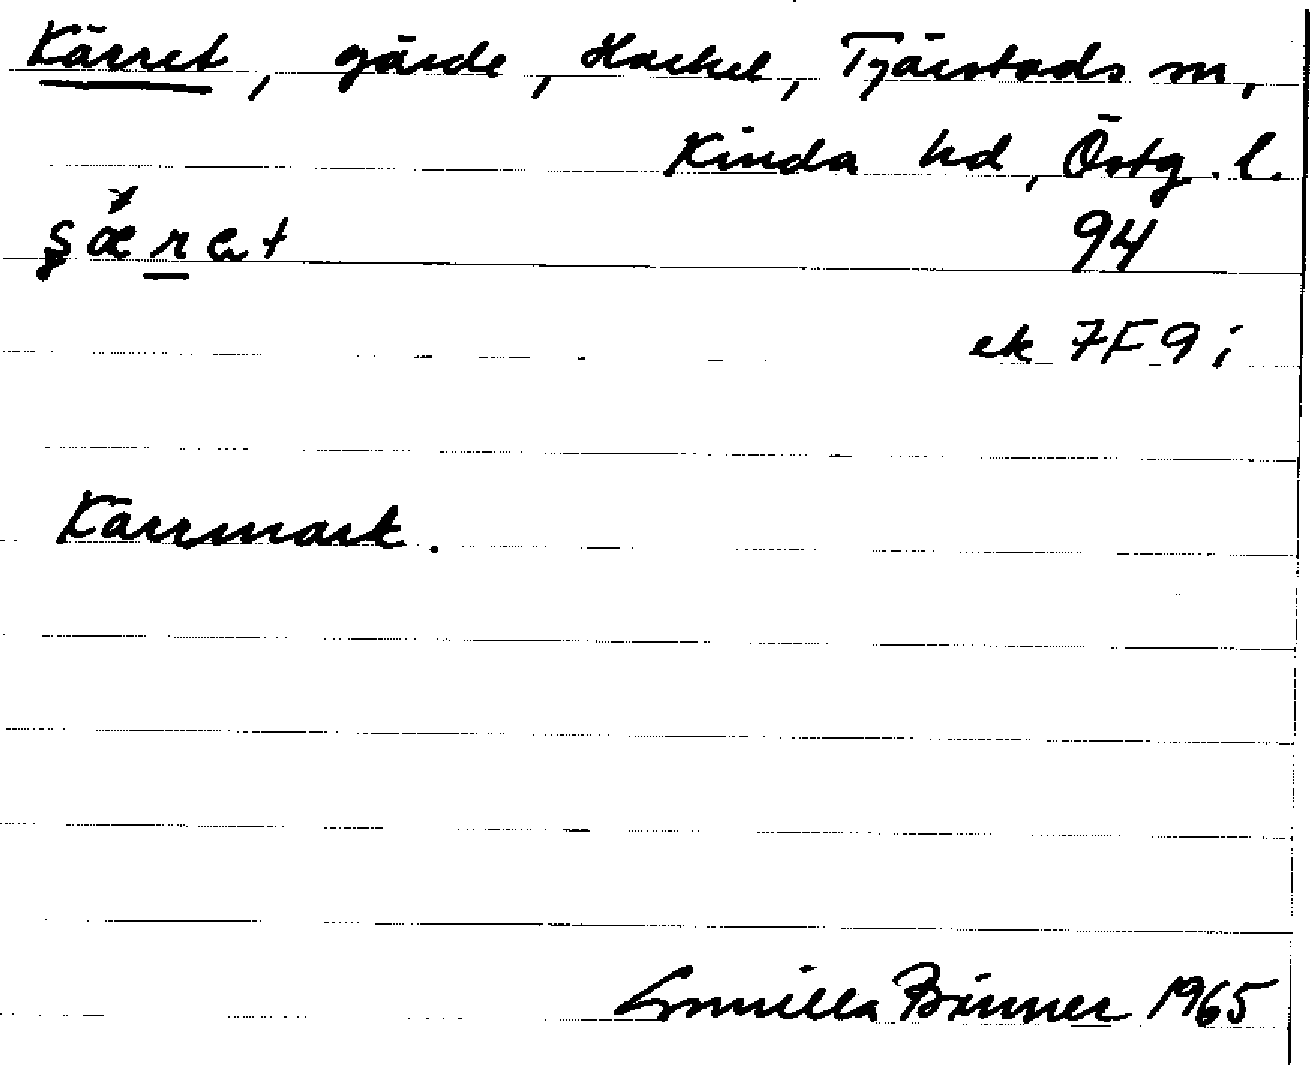 Kärret, gärde, Hackel, Tjärstads sn,
Kinda hd, Östg. l.
94
ek 7F 9 i
Kärrmark.
Gunilla Brinner 1965